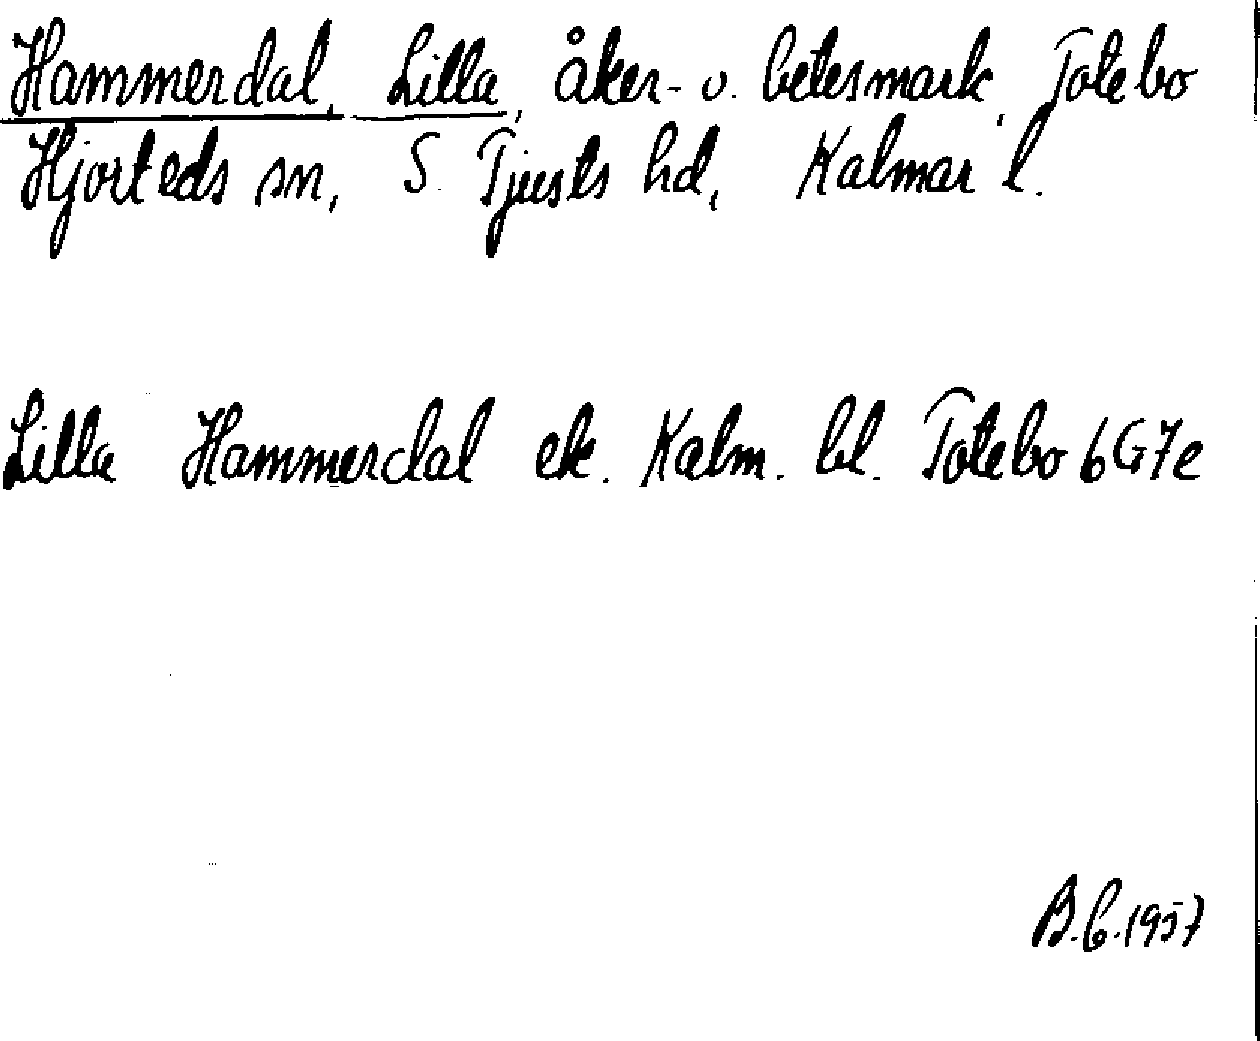 Hammerdal, Lilla, åker- o. betesmark, Totebo
Hjorteds sn, S. Tjusts hd, Kalmar l.
Lilla Hammerdal ek. Kalm. bl. Totebo 6G7e
B.C. 1957